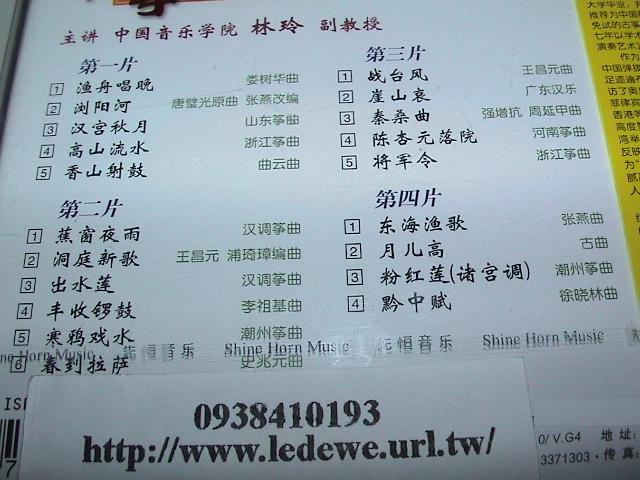 主讲 中国音乐学院 林玲 副教授
第一片
1 渔舟唱晚 娄树华曲
2 浏阳河 唐璧光原曲 张燕改编
3 汉宫秋月 山东筝曲
4 高山流水 浙江筝曲
5 香山射鼓 曲云曲
第二片
1 蕉窗夜雨 汉调筝曲
2 洞庭新歌 王昌元 浦琦璋编曲
3 出水莲 汉调筝曲
4 丰收锣鼓 李祖基曲
5 寒鸦戏水 潮州筝曲
6 春到拉萨 史兆元曲
第三片
1 战台风 王昌元曲
2 崖山哀 广东汉乐
3 秦桑曲 强增抗 周延甲曲
4 陈杏元落院 河南筝曲
5 将军令 浙江筝曲
第四片
1 东海渔歌 张燕曲
2 月儿高 古曲
3 粉红莲(诸宫调) 潮州筝曲
4 黔中赋 徐晓林曲
Horn Music 恒音乐 Shine Horn Music 恒音乐 Shine Horn Music
0938410193
http://www.ledewe.url.tw/
0/ V.G4 地址:
3371303·传真:
大学毕业,
推荐为中国
免试的古筝
七年以学术
演奏艺术
作为
中国弹拨
足迹遍
访了奥
菲律宾
香港等
高度
湾举
反映
为“